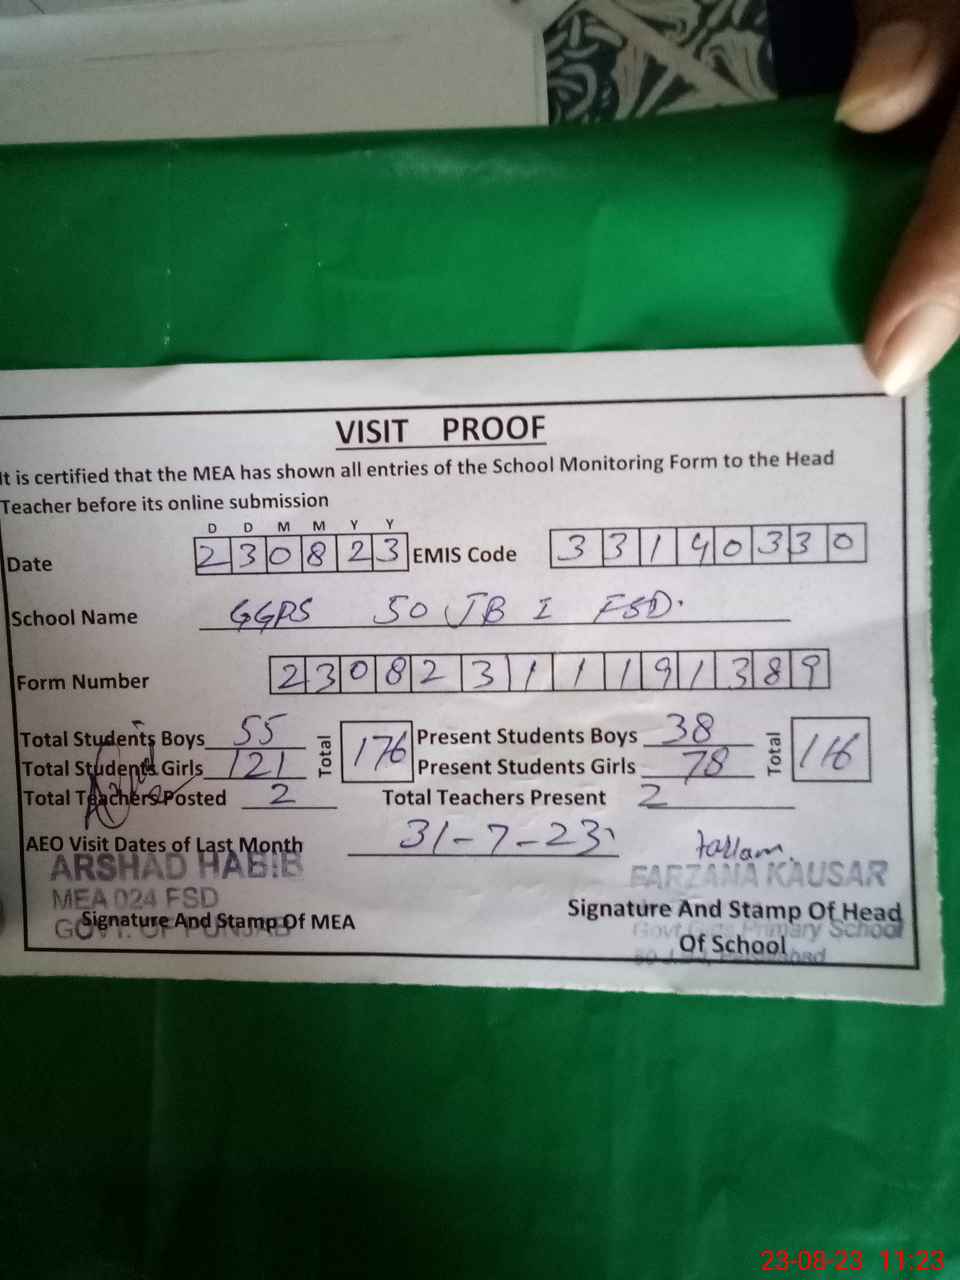 VISIT PROOF
It is certified that the MEA has shown all entries of the School Monitoring Form to the Head
Teacher before its online submission
D D M M Y Y
Date 230823 EMIS Code 33140330
School Name GGPS 50 JB I FSD.
Form Number 23082311191389
Total Students Boys 55 Total 176 Present Students Boys 38 Total 116
Total Students Girls 121 Present Students Girls 78
Total Teachers Posted 2 Total Teachers Present 2
AEO Visit Dates of Last Month 31-7-23
ARSHAD HABIB FARZANA KAUSAR
MEA 024 FSD
Signature And Stamp Of MEA Signature And Stamp Of Head
GOVT. OF PUNJAB Govt. Girls Primary School
Of School
23-08-23 11:23